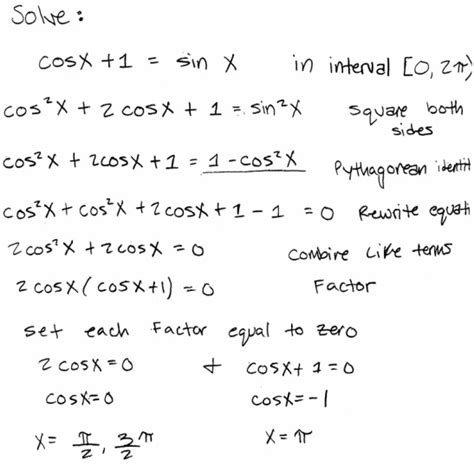 Solve:
cosx + 1 = sin x in interval [0, 2π)
cos²x + 2cosx + 1 = sin²x square both sides
cos²x + 2cosx + 1 = 1 - cos²x Pythagorean identit
cos²x + cos²x + 2cosx + 1 - 1 = 0 Rewrite equati
2cos²x + 2cosx = 0 combine like terms
2cosx(cosx+1) = 0 Factor
set each factor equal to zero
2cosx = 0 + cosx + 1 = 0
cosx = 0 cosx = -1
x = π/2, 3/2 π x = π